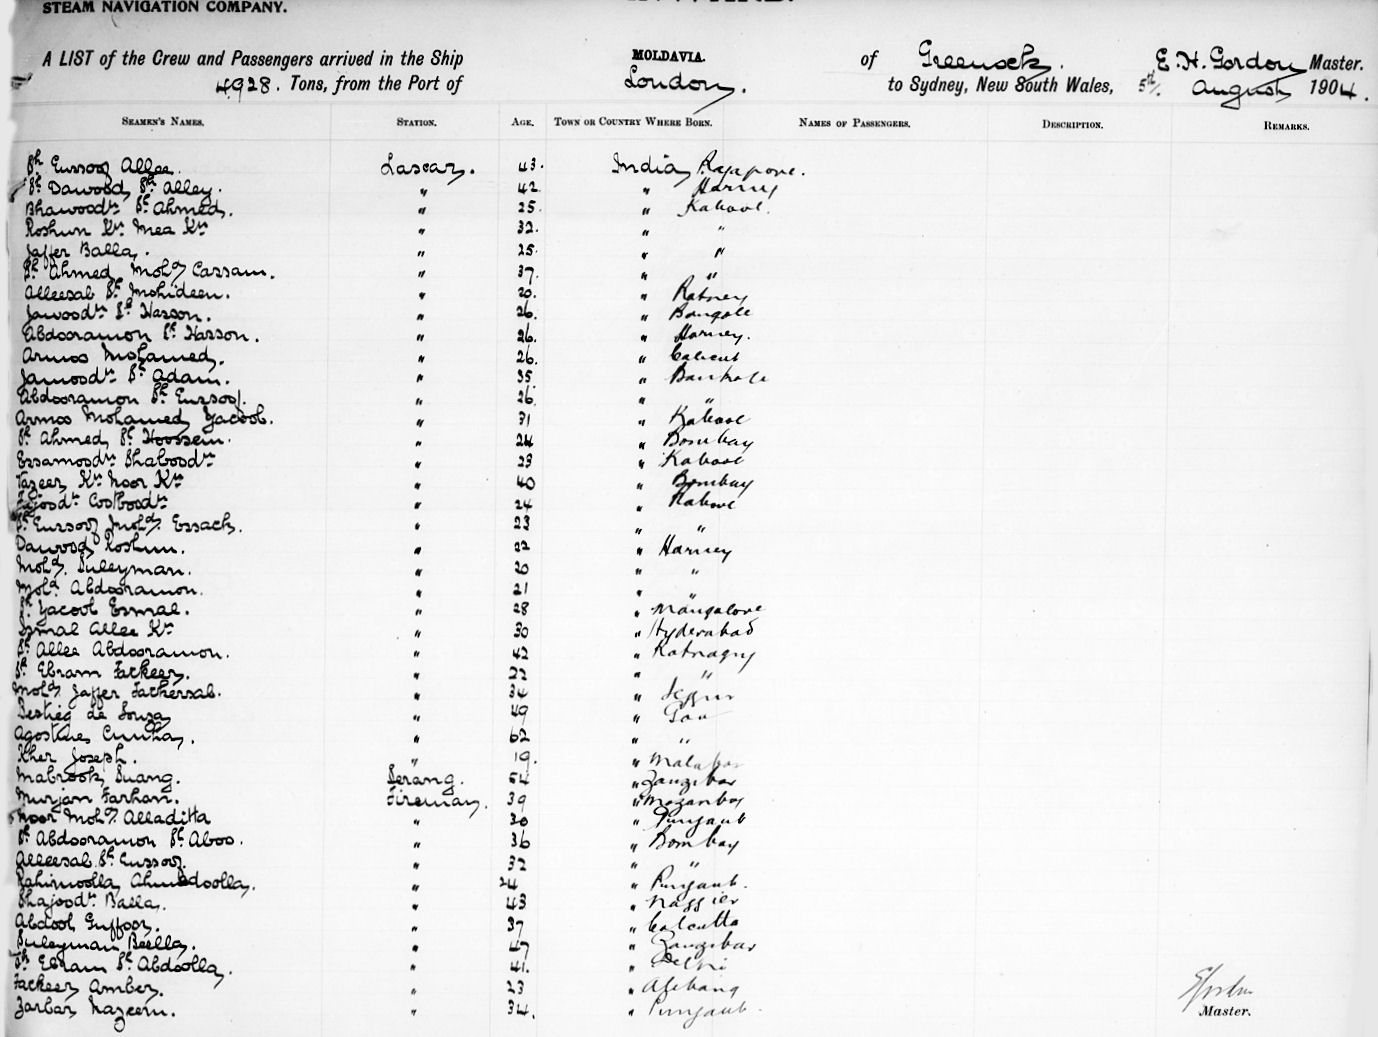 STEAM NAVIGATION COMPANY.
A LIST of the Crew and Passengers arrived in the Ship MOLDAVIA. of Greenock. E. H. Gordon Master.
4928. Tons, from the Port of London. to Sydney, New South Wales, 5th/. August 1904.
SEAMEN'S NAMES. STATION. AGE. TOWN OR COUNTRY WHERE BORN. NAMES OF PASSENGERS. DESCRIPTION. REMARKS.
Sk Eussoof Allee. Lascar. 43. India
Sk Dawood, Sk Alley. " 42. " Harney
Bhawoodn Sk Ahmed. " 25. " Kabool.
Roshun Kn Mea Kn " 32. " "
Jaffer Balla. " 25. " "
Sk Ahmed, Mohd Cassam. " 37. " "
Alleesab Sk Mohideen. " 20. "
Jawoodn Sk Hasson. " 26. "
Abdooramon Sk Hasson. " 26. " Harney.
Armoo Mohamed. " 26. " Calicut
Jamoodn Sk Adam. " 35 "
Abdooramon Sk Eussoof. " 26. " "
Armoo Mohamed, Yacoob. " 31 " Kabool
Sk Ahmed, Sk Hoossein. " 24 " Bombay
Essamoodn Shaboodn " 23 " Kabool
Kn Noor Kn " 40 " Bombay
Cootboodn " 24 "
Sk Eussoof Mohd. Essack. " 23 " "
Dawood, Roshun. " 22 " Harney
Mohd. Suleyman. " 20 " "
Mohd Abdooramon. " 21 " "
Sk Yacoob Esmal. " 28 " Mangalore
Esmal Allee Kn " 30 " Hyderabad
Sk Allee Abdooramon. " 42 "
Sk Ebram Fackeer. " 22 " "
Mohd Jaffer Fackersab. " 34 "
de Souza " 49 " Goa
Cunha. " 62 " "
Joseph. " 19. " Malabar
Mabrook, Suang. Serang. 54 " Zanzibar
Murjan Farhan. Fireman. 39 "
Noor Mohd Alladitta " 30 " Punjaub
Sk Abdooramon Sk Aboo. " 36 " Bombay
Alleesab Sk Eussoof. " 32 " "
Rahimoolla, " 24 " Punjaub.
Shajoodn Balla. " 43 "
Abdool Guffoor. " 37 " Calcutta
Suleyman Beella. " 47 " Zanzibar
Sk Ebram Sk Abdoolla. " 41. " Delhi
Fackeer, Amber. " 23 "
Zarbar, Nazeem. " 34. " Punjaub.
Master.